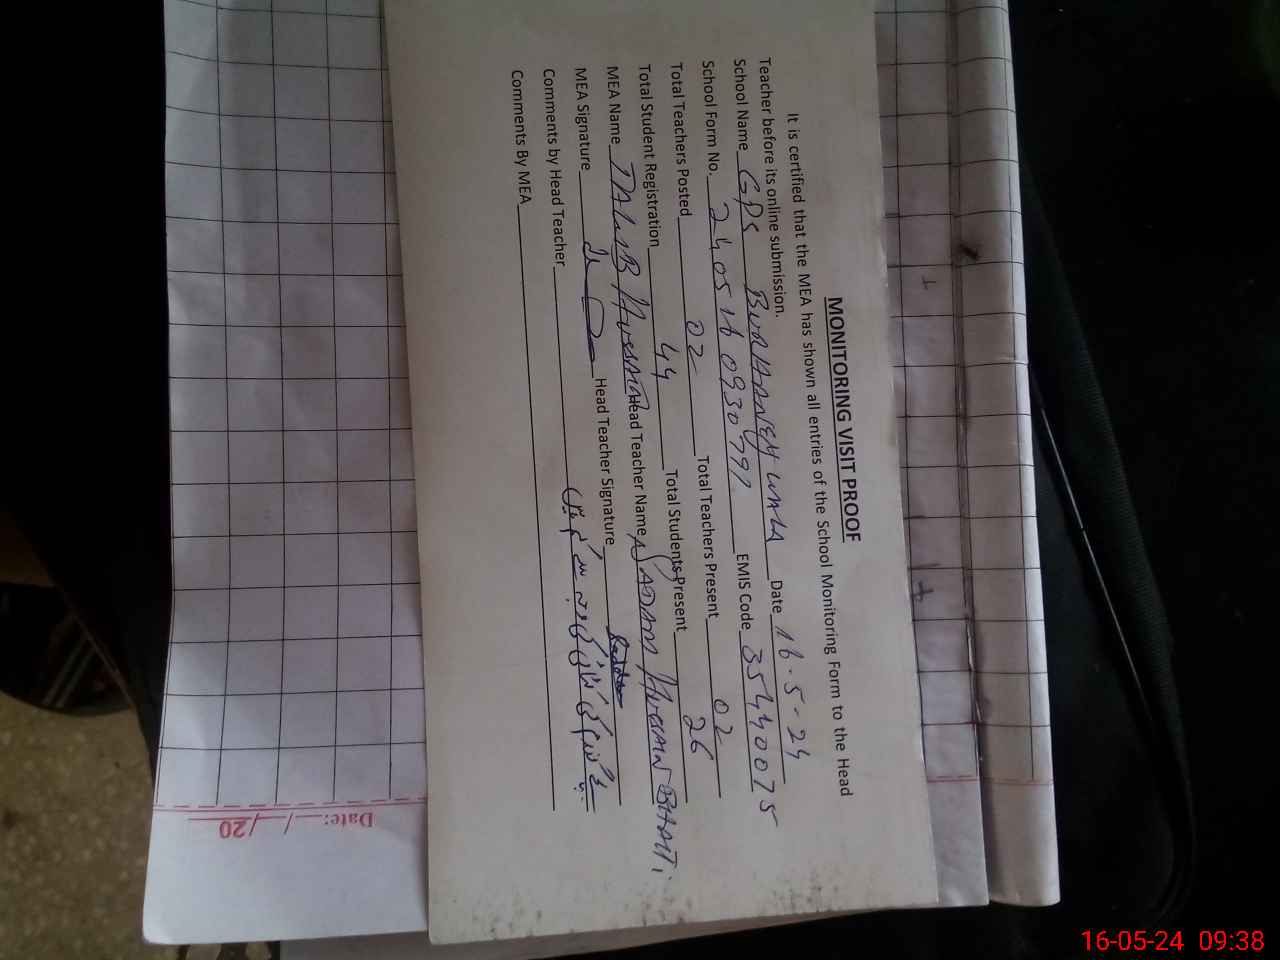 MONITORING VISIT PROOF
It is certified that the MEA has shown all entries of the School Monitoring Form to the Head
Teacher before its online submission.
School Name GPS BURHANEY WALA Date 16.5-24
School Form No. 240516093079 EMIS Code 35440075
Total Teachers Posted 02 Total Teachers Present 02
Total Student Registration 44 Total Students Present 26
MEA Name TALIB Hussain Head Teacher Name SADAM Hussain BHATTI
MEA Signature Head Teacher Signature
Comments by Head Teacher
Comments By MEA
Date: / /20
16-05-24 09:38